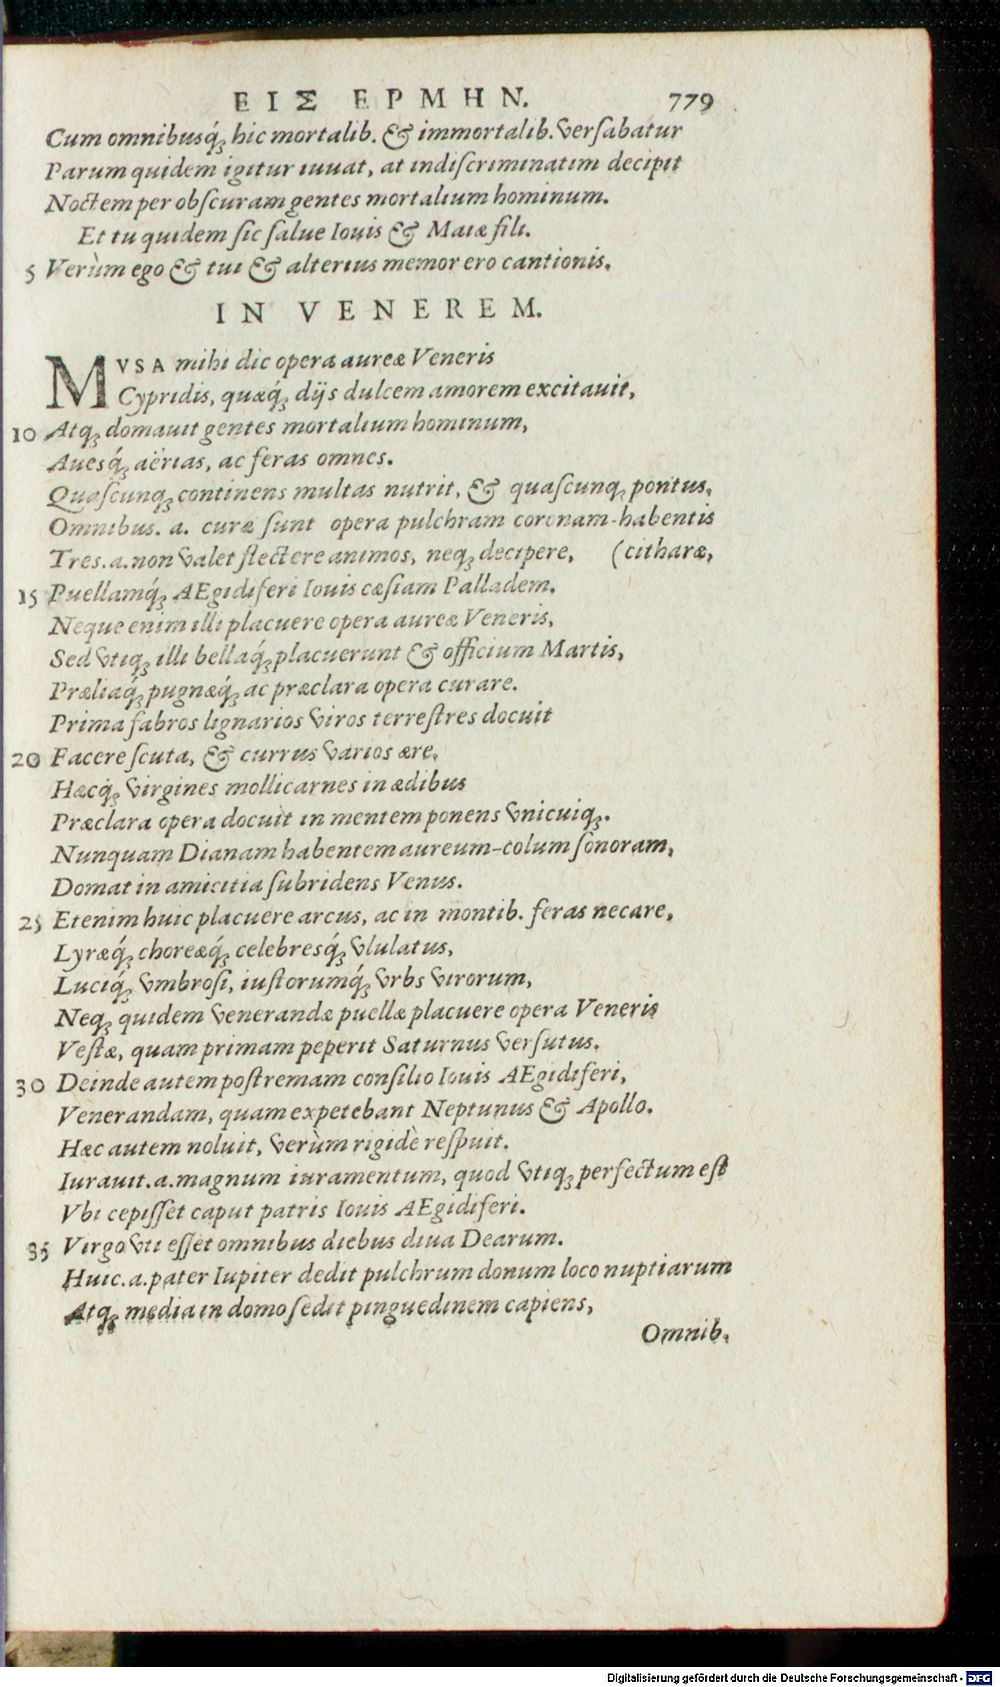 ΕΙΣ ΕΡΜΗΝ. 779
Cum omnibusq́; hic mortalib. & immortalib. versabatur
Parum quidem igitur iuuat, at indiscriminatim decipit
Noctem per obscuram gentes mortalium hominum.
Et tu quidem sic salue Iouis & Maiæ fili.
5 Verùm ego & tui & alterius memor ero cantionis.
IN VENEREM.
MVSA mihi dic opera aureæ Veneris
Cypridis, quæq́; dijs dulcem amorem excitauit,
10 Atq; domauit gentes mortalium hominum,
Auesq́; aërias, ac feras omnes.
Quascunq; continens multas nutrit, & quascunq; pontus,
Omnibus. a. curæ sunt opera pulchram coronam-habentis
Tres. a. non valet flectere animos, neq; decipere, (citharæ,
15 Puellamq́; AEgidiferi Iouis cæsiam Palladem.
Neque enim illi placuere opera aureæ Veneris,
Sed vtiq; illi bellaq́; placuerunt & officium Martis,
Præliaq́; pugnæq́; ac præclara opera curare.
Prima fabros lignarios viros terrestres docuit
20 Facere scuta, & currus varios ære,
Hæcq́; virgines mollicarnes in ædibus
Præclara opera docuit in mentem ponens vnicuiq;.
Nunquam Dianam habentem aureum-colum sonoram,
Domat in amicitia subridens Venus.
25 Etenim huic placuere arcus, ac in montib. feras necare,
Lyræq́; choreæq́; celebresq́; vlulatus,
Luciq́; vmbrosi, iustorumq́; vrbs virorum,
Neq; quidem venerandæ puellæ placuere opera Veneris
Vestæ, quam primam peperit Saturnus versutus.
30 Deinde autem postremam consilio Iouis AEgidiferi,
Venerandam, quam expetebant Neptunus & Apollo.
Hæc autem noluit, verùm rigidè respuit.
Iurauit. a. magnum iuramentum, quod vtiq; perfectum est
Vbi cepisset caput patris Iouis AEgidiferi.
35 Virgo vti esset omnibus diebus diua Dearum.
Huic. a. pater Iupiter dedit pulchrum donum loco nuptiarum
Atq; media in domo sedit pinguedinem capiens,
Omnib.
Digitalisierung gefördert durch die Deutsche Forschungsgemeinschaft - DFG